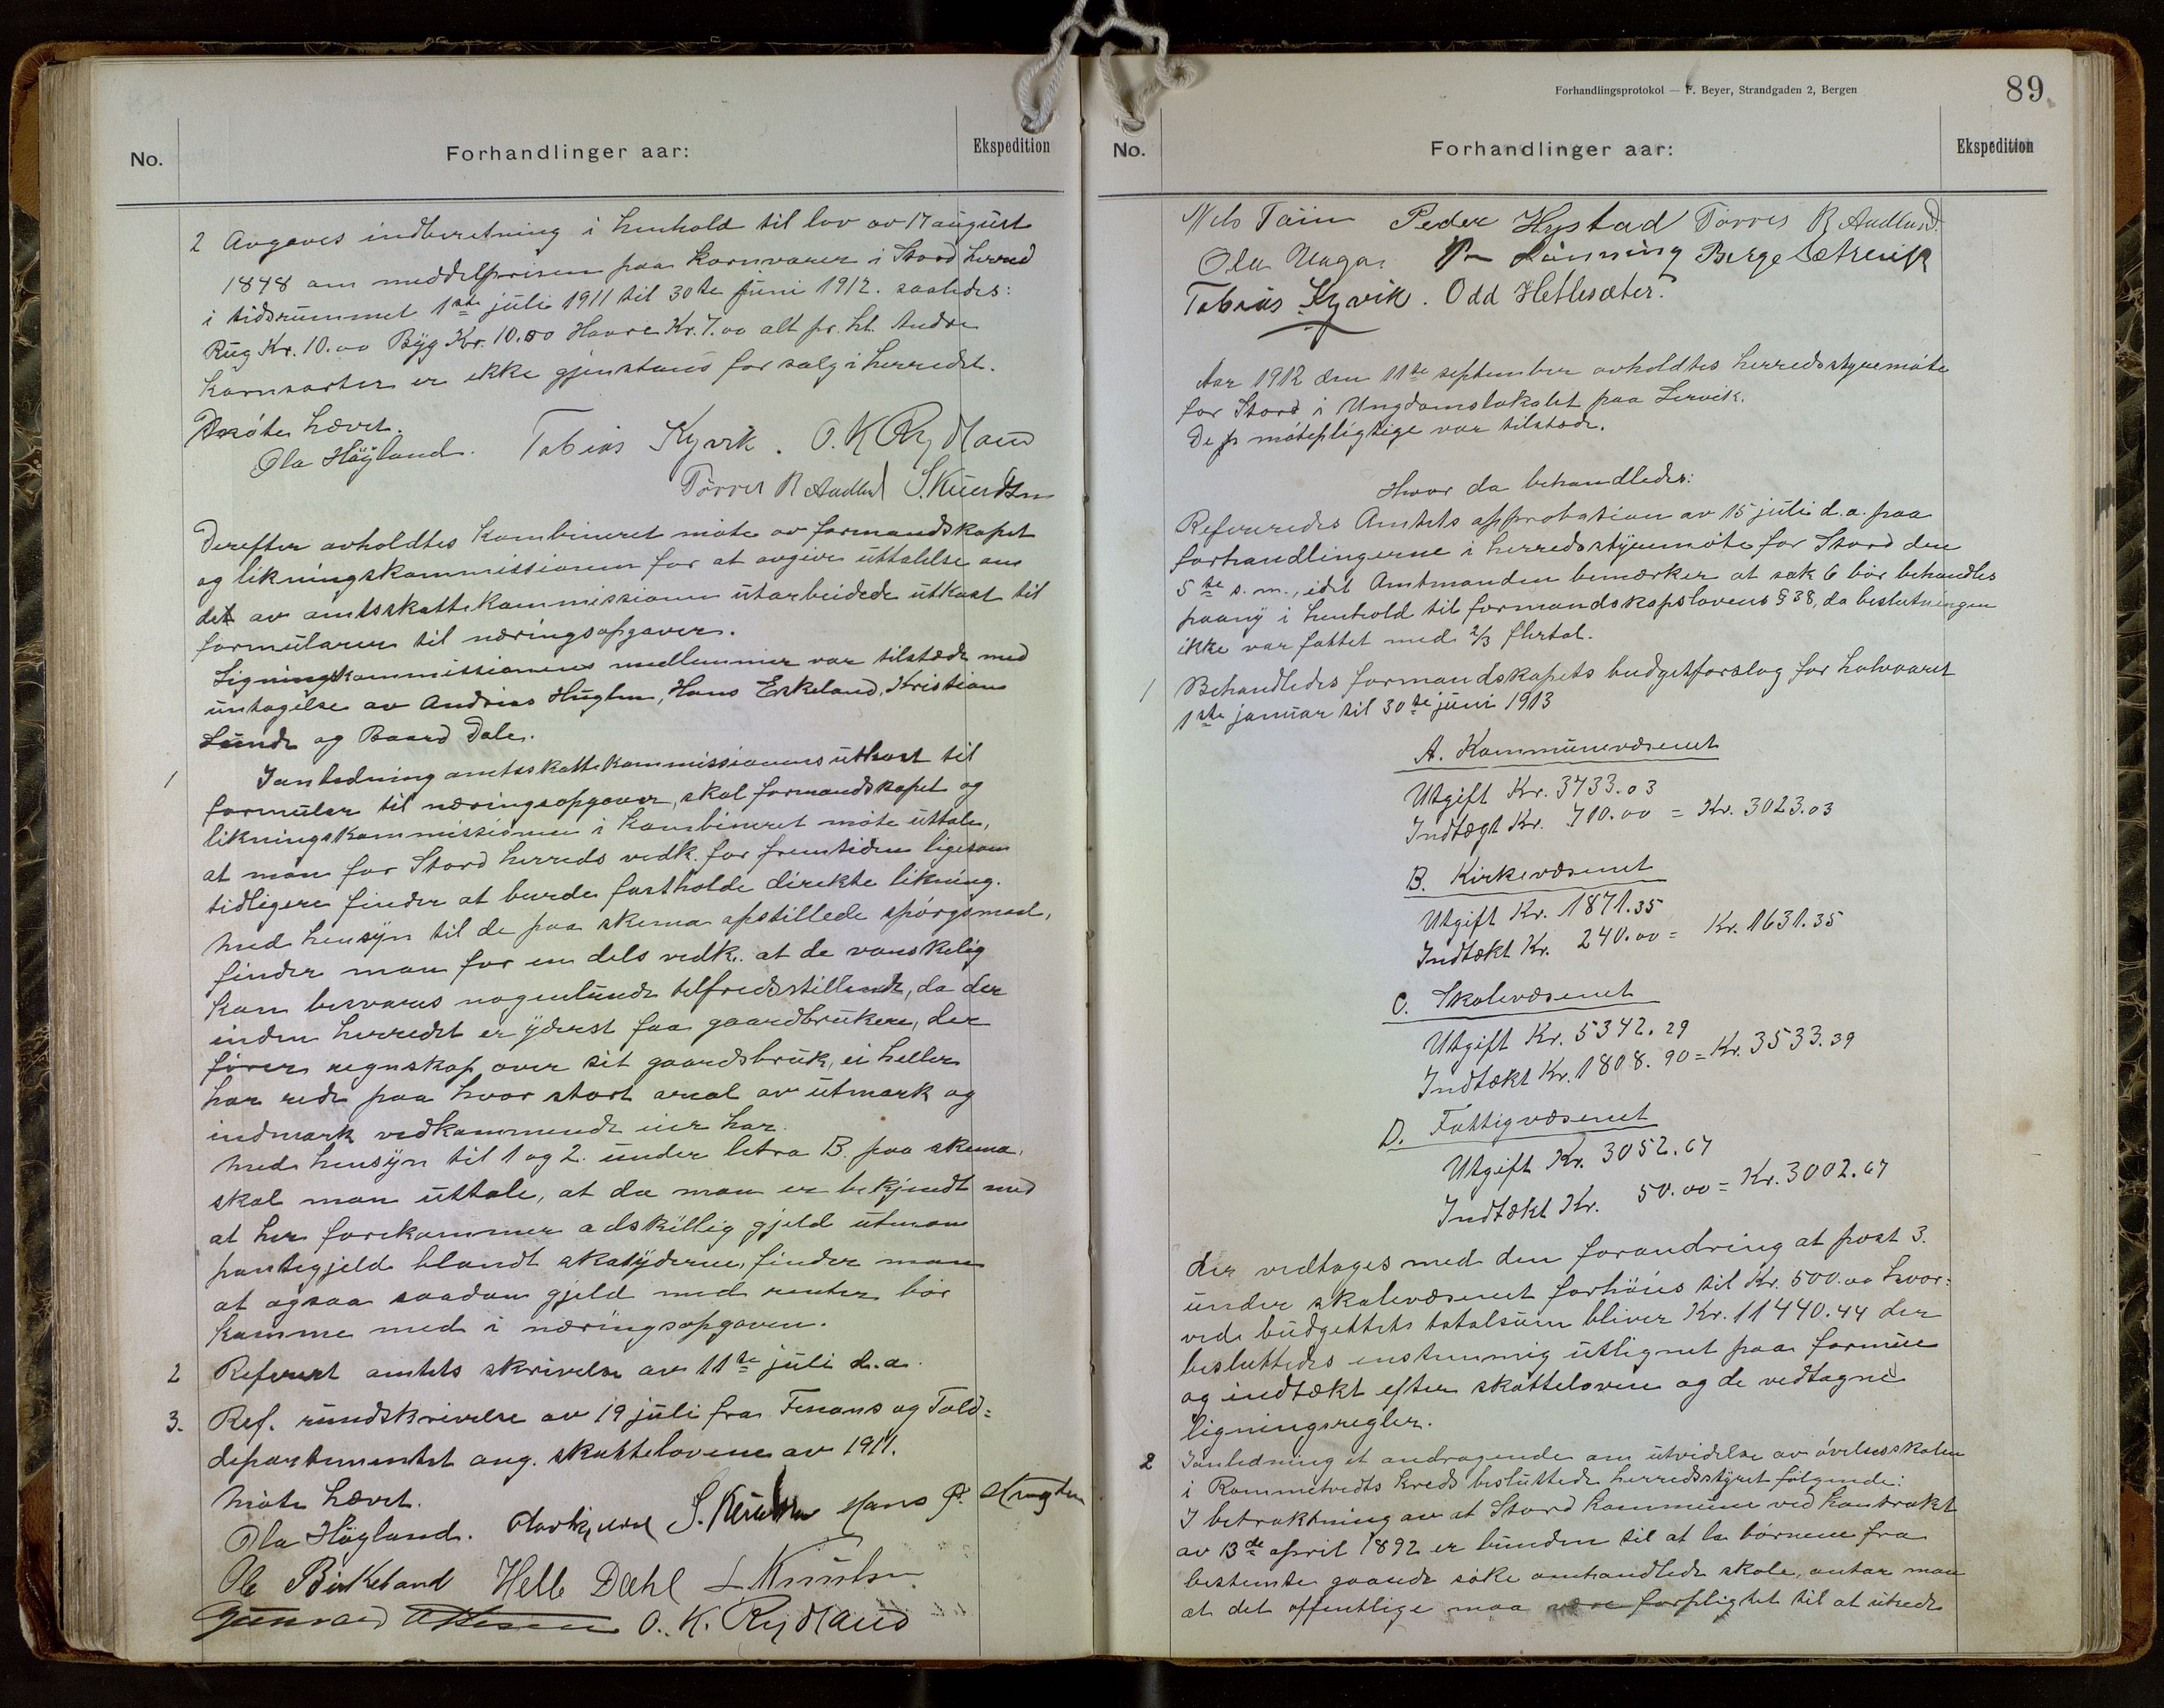 No.
Forhandlinger aar:
Ekspedition
2 Avgaves indberetning i henhold til lov av 17 august
1848 om middelprisen paa kornvarer i Stord herred
i tidsrummet 1ste juli 1911 til 30te juni 1912. saaledes:
Rug Kr. 10.00 Byg Kr. 10.00 Havre Kr. 7.00 alt pr. hl. Andre
kornsorter er ikke gjenstand for salg i herredet.
Møte hævet.
Ola Høyland. Tobias Kyvik. O. K Rydland
Tørres R Aadland S. Knudsen
Derefter avholdtes kombineret møte av formandskapet
og likningskommissionen for at avgive uttalelse om
det av amtsskattekommissionen utarbeidede utkast til
formularer til næringsopgaver.
Ligningskommissionens medlemmer var tilstæde med
untagelse av Andreas Huglen, Hans Eskeland, Kristian
Lunde og Baard Dale.
1 I anledning amtsskattekommissionens utkast til
formular til næringsopgaver, skal formandskapet og
likningskommissionen i kombineret møte uttale,
at man for Stord herreds vedk. for fremtiden ligesom
tidligere finder at burde fastholde direkte likning.
Med hensyn til de paa skema opstillede spørgsmaal,
finder man for en dels vedk. at de vanskelig
kan besvares nogenlunde tilfredsstillende, da der
inden herredet er yderst faa gaardbrukere, der
fører regnskap over sit gaardsbruk, ei heller
har rede paa hvor stort areal av utmark og
indmark vedkommende eier har.
Med hensyn til 1 og 2. under litra B. paa skema,
skal man uttale, at da man er bekjendt med
at her forekommer adskillig gjeld utenom
pantegjeld blandt skatyderne, finder man
at ogsaa saadan gjeld med renter bør
komme med i næringsopgaven.
2 Referert amtets skrivelse av 11te juli d.a.
3. Ref. rundskrivelse av 19 juli fra Finans og Told=
departementet ang. skattelovene av 1911.
Møte hævet.
Ola Høyland. S. Knudsen Hans P.
Ole Birkeland Helle Dahl L Knutsen
Gunnar O. K. Rydland
Forhandlingsprotokol — F. Beyer, Strandgaden 2, Bergen
89.
No.
Forhandlinger aar:
Ekspedition
Nels Tøim Peder Hystad Tørres R Aadland.
Ola Rønning Berge Sætrevik
Tobias Kyvik. Odd Hettesæter.
Aar 1912 den 11te september avholdtes herredsstyremøte
for Stord i Ungdomslokalet paa Lervik.
De møtepligtige var tilstæde.
Hvor da behandledes:
Refereredes Amtets approbation av 15 juli d.a. paa
forhandlingerne i herredsstyremøte for Stord den
5te s.m., idet Amtmanden bemærker at sak 6 bør behandles
paany i henhold til formandskapslovens § 38, da beslutningen
ikke var fattet med 2/3 flertal.
1 Behandledes formandskapets budgetforslag for halvaaret
1ste januar til 30te juni 1913
A. Kommunevæsenet
Utgift Kr. 3733.03
Indtægt Kr. 710.00 = Kr. 3023.03
B. Kirkevæsenet
Utgift Kr. 1871.35
Indtækt Kr. 240.00 = Kr. 1631.35
C. Skolevæsenet
Utgift Kr. 5342.29
Indtækt Kr. 1808.90 = Kr. 3533.39
D. Fattigvæsenet
Utgift Kr. 3052.67
Indtækt Kr. 50.00 = Kr. 3002.67
der vedtages med den forandring at post 3.
under skolevæsenet forhøies til Kr. 500.00 hvor=
ved budgettets totalsum bliver Kr. 11440.44 der
besluttedes enstemmig utlignet paa formue
og indtækt efter skatteloven og de vedtagne
ligningsregler.
2 I anledning et andragende om utvidelse av øvelsesskolen
i Rommetvedts kreds besluttede herredsstyret følgende:
I betraktning av at Stord kommune ved kontrakt
av 13de april 1892 er bunden til at la børnene fra
bestemte gaarde søke omhandlede skole, antar man
at det offentlige maa være forpligtet til at utrede